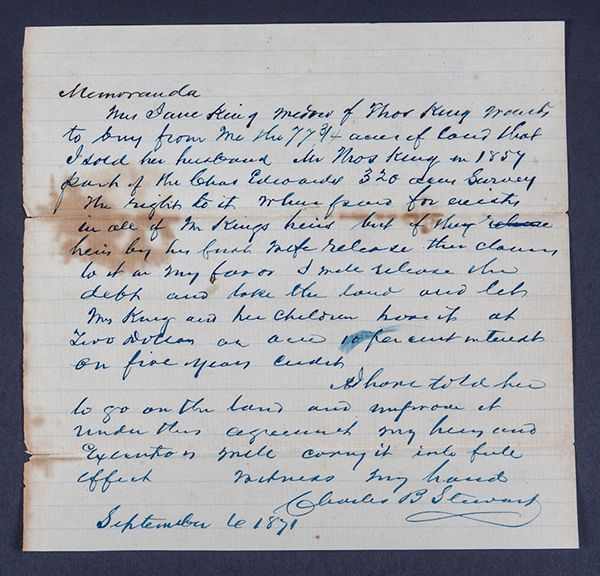 Memoranda
Mrs Jane King widow of Thos King wants
to buy from me the 77 3/4 acres of land that
I sold her husband Mr Thos King in 1857
part of the Chas Edwards 320 acre Survey
The right to it when paid for exists
in all of Mr Kings heirs but if they release
heirs by his first wife release their claims
to it in my favor I will release the
debt and take the land and let
Mrs King and her children have it at
Two Dollars an acre 10 per cent interest
on five years credit
I have told her
to go on the land and improve it
under this agreement my heirs and
Executors will carry it into full
effect Witness my hand
Charles B Stewart
September 6 1871